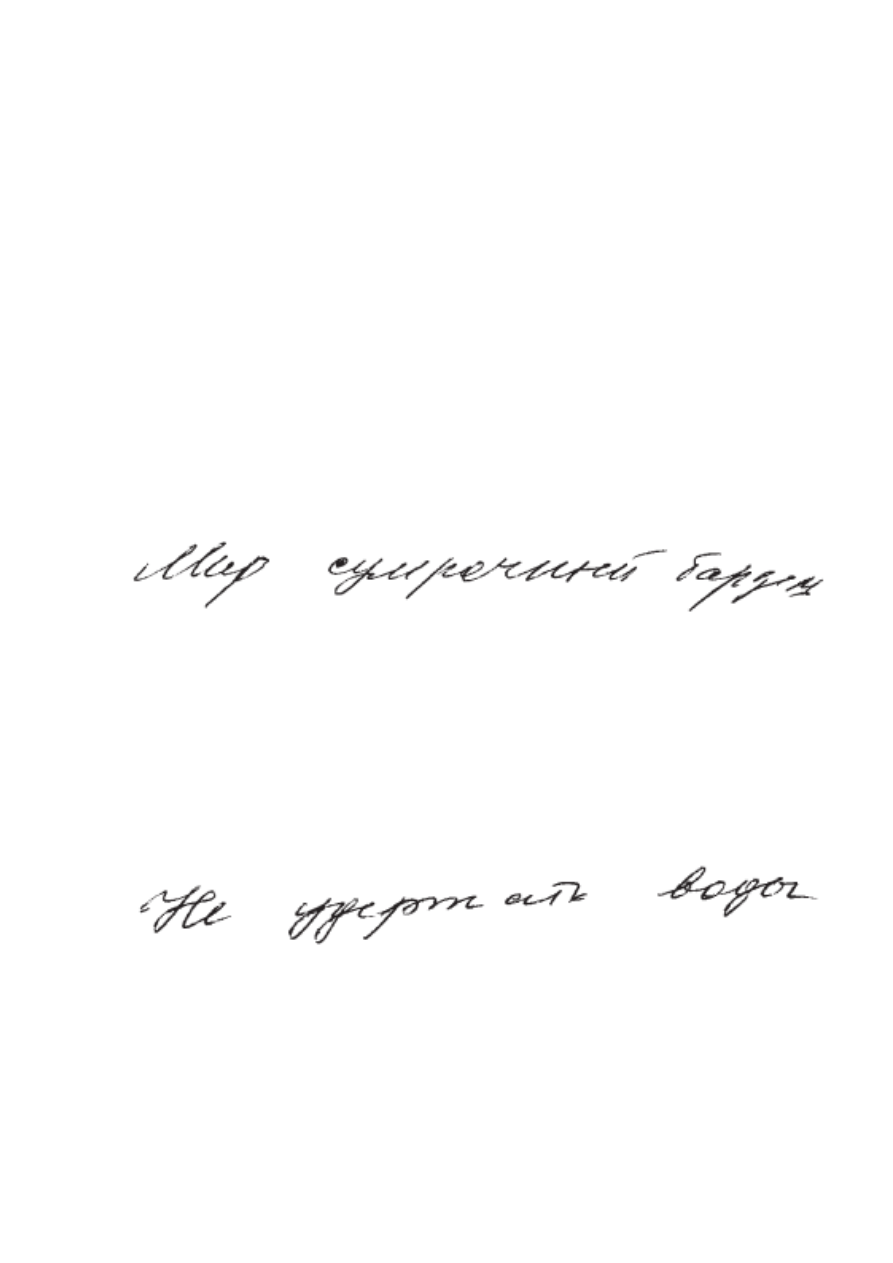 Мир сумрачный
Не удержать воды